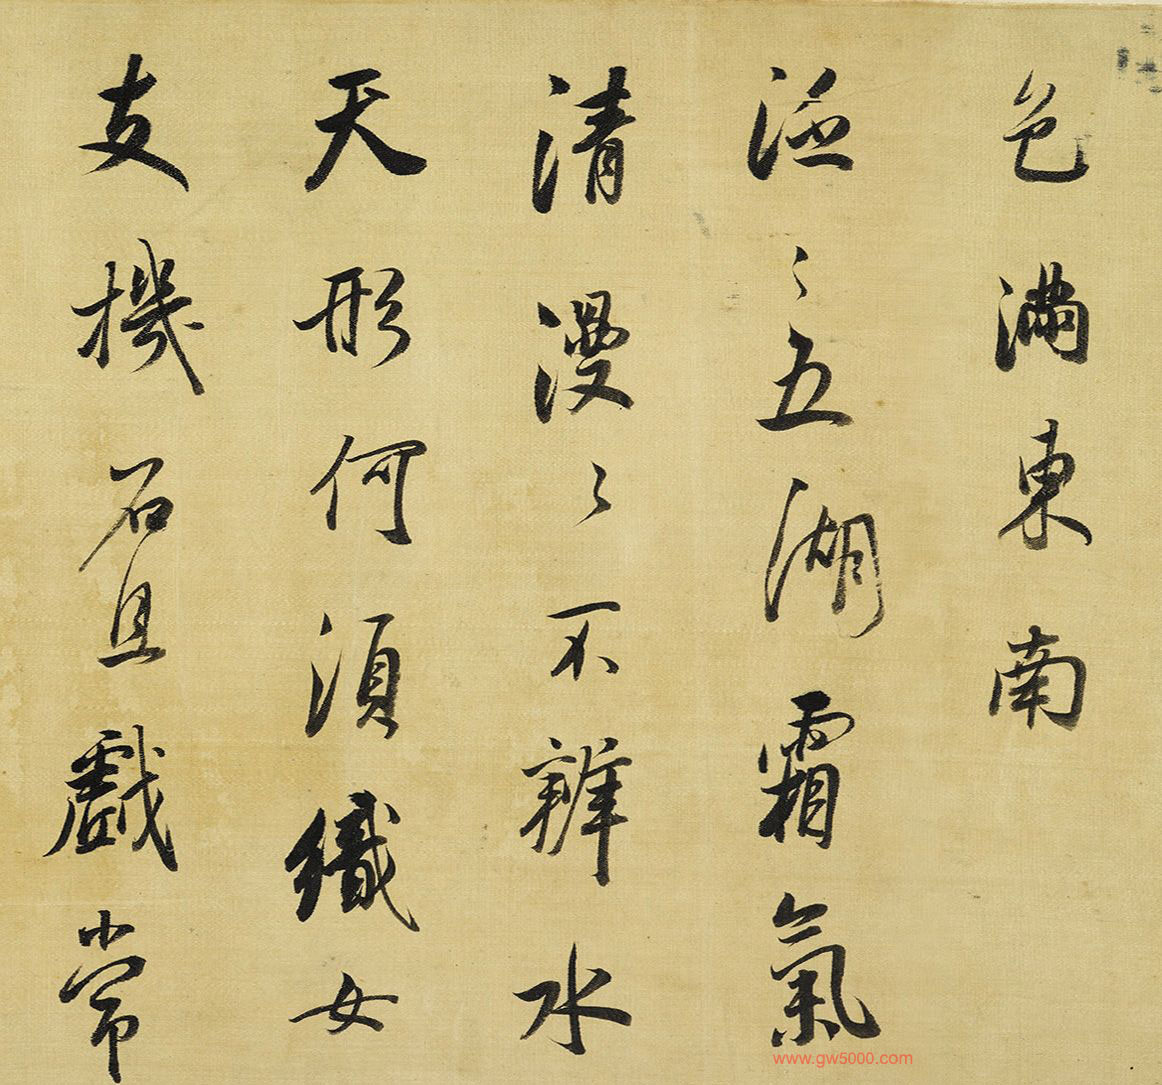 色滿東南
泛〻五湖霜氣
清漫〻不辨水
天形何須織女
支機石且戲常
www.gw5000.com